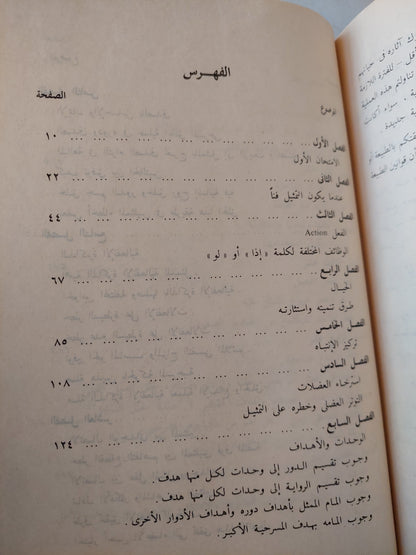 الفهـرس
الموضوع الصفحة
الفصل الأول ... ... ... ... ... ... ... ١٠
الامتحان الأول
الفصل الثانى ... ... ... ... ... ... ... ٢٢
عندما يكون التمثيل فناً
الفصل الثالث ... ... ... ... ... ... ... ٤٤
الفعل Action
الوظائف المختلفة لكلمة « إذا » أو « لو »
الفصل الرابع ... ... ... ... ... ... ... ٦٧
الخيـال
طرق تنميته واستثارته
الفصل الخامس ... ... ... ... ... ... ... ٨٥
تركيز الإنتباه
الفصل السادس ... ... ... ... ... ... ... ١٠٨
استرخاء العضلات
التوتر العضلى وخطره على التمثيـل
الفصل السابع ... ... ... ... ... ... ... ١٢٤
الوحدات والأهـداف
وجوب تقسيـم الدور إلى وحدات لكـل منها هدف .
وجوب تقسيم الرواية إلى وحدات لكـل منها هدف .
وجوب المام الممثل بأهداف دوره وأهـداف الأدوار الأخرى .
وجوب المامه بهدف المسرحية الأكبـر .
آثاره فى
للفترة اللازمة
هذه العملية
سواء أكانت
جديدة .
بالطبيعة أو
قوانين الطبيعة